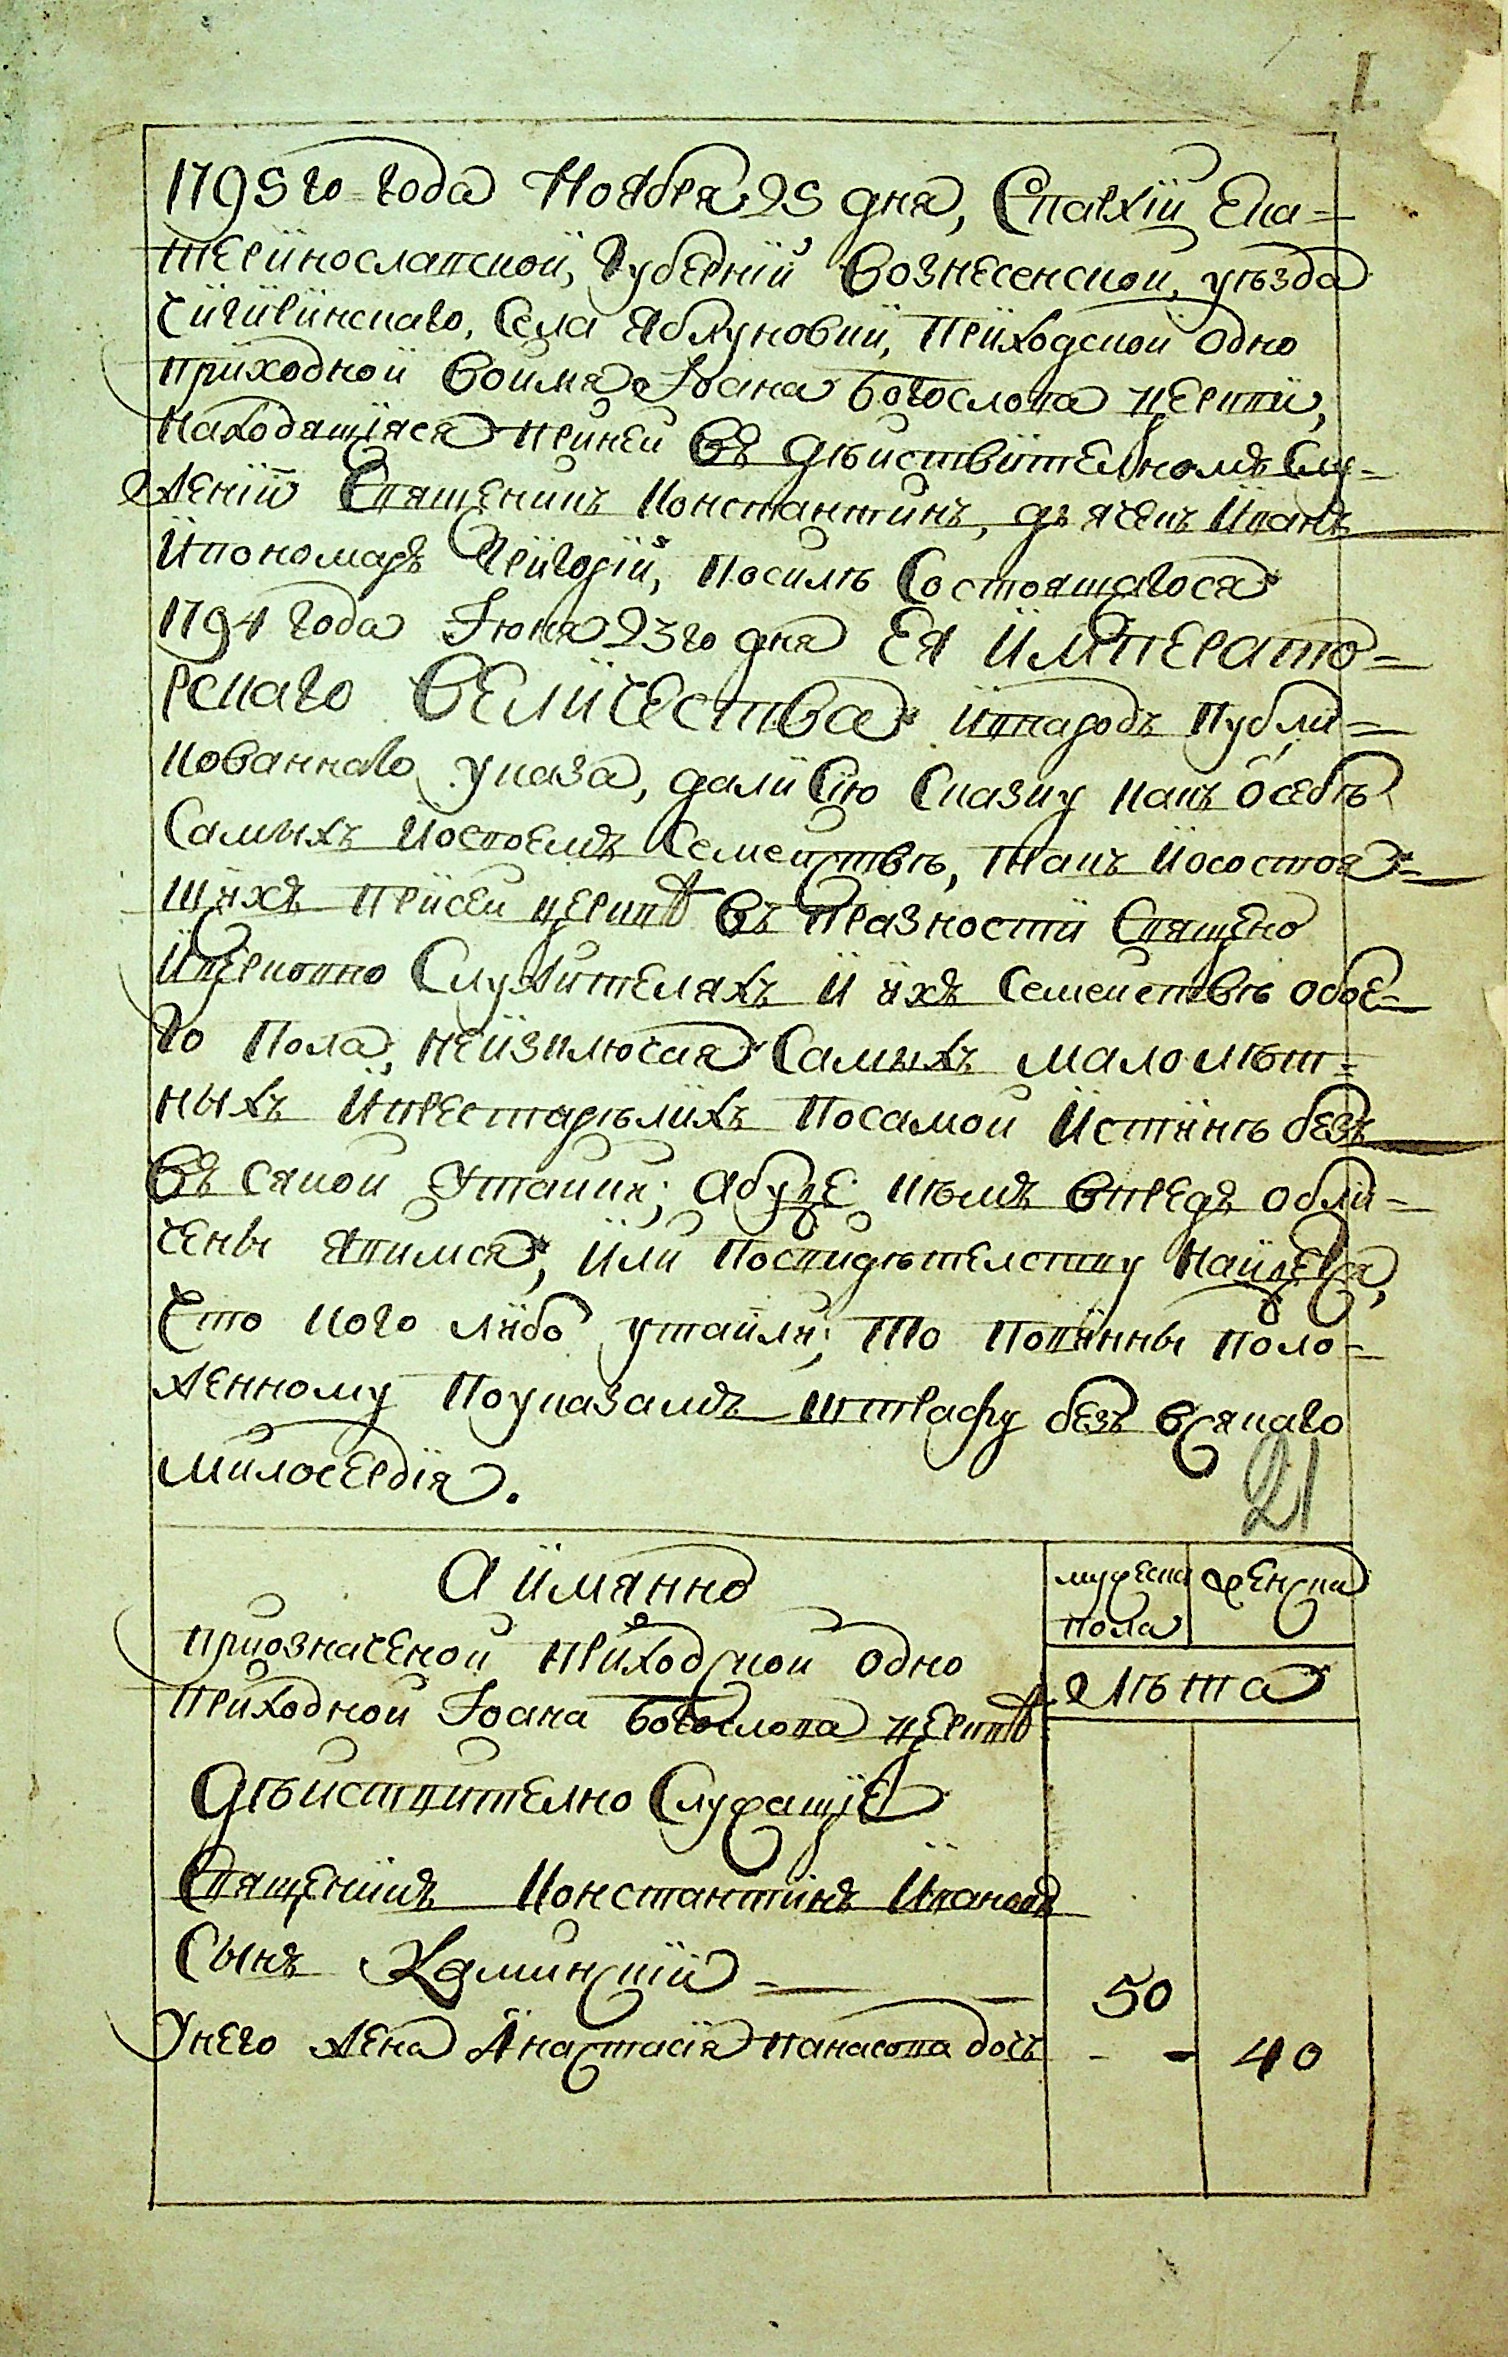 1.
1795 го года Ноября 25 дня, Епархіи Ека=
терїнославской, Губернїи Вознесенской, уѣзда
Чїгїрїнскаго, Села Яблуновки, Прїходской одно
прїходной воимя Іоана Богослова церкви,
находящїяся принеи въ дѣиствїтелномъ слу=
женїи Священикъ Константинъ, дьячекъ Иванъ
Ипономаръ Грїгорїй, посилѣ Состоящагося
1794 года Іюня 23 го дня ЕЯ ИМПЕРАТО=
РСКАГО ВЕЛИЧЕСТВА ивнародъ публи=
кованнаго указа, дали Сїю Сказку какъ осебѣ
самыхъ исвоемъ семействѣ, такъ иосостоя=
щихъ прїсеи церкви въ празности Священо
ицерковно служителяхъ и ихъ семеиствѣ обое=
го пола, неизключая самыхъ малолѣт=
ныхъ ипрестарѣлихъ посамой истинѣ безъ
въсякои утаики; абуде кѣмъ впредъ обли=
чены явимся, или посвидѣтелству наидется,
что кого либо утаили; то повинны поло=
женному поуказамъ штрафу безъ всякаго
милосердїя.
21
А имянно
мужеска
пола
женска
лѣта
приозначеной прїходской одно
прїходной Іоана Богослова церкви
Дѣиствително Служащїе
Священикъ Константинъ Ивановъ
Сынъ Каминскїй = 50
Унего жена Анастасїя Панасова дочь - - 40